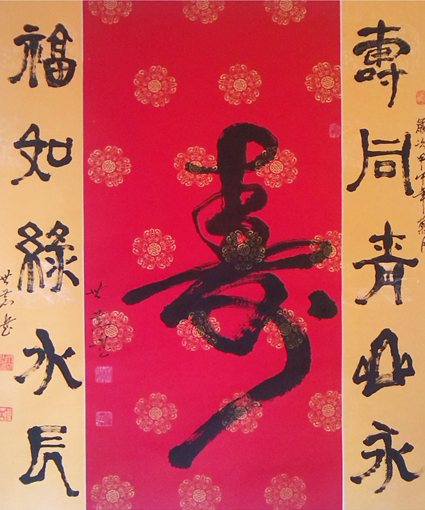 壽同青山永
寿
福如綠水長